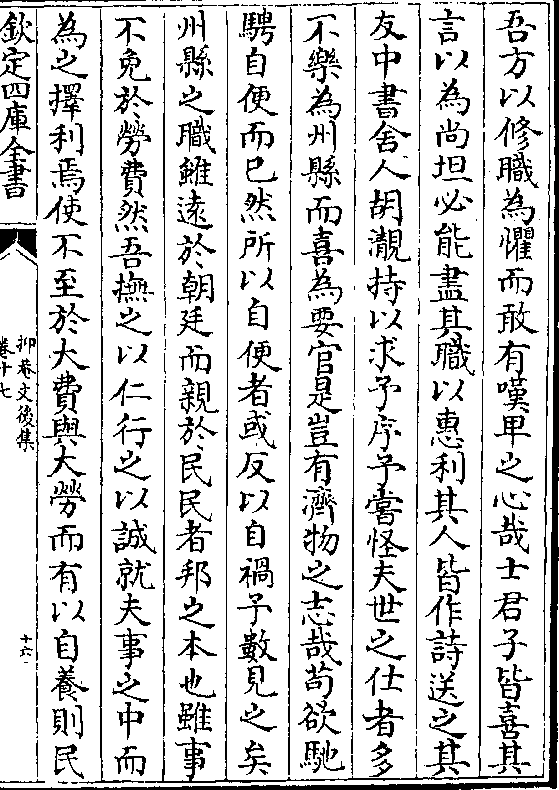 吾方以修職為懼而敢有嘆卑之心哉士君子皆喜其
言以為尚坦必能盡其職以惠利其人皆作詩送之其
友中書舍人胡灖持以求予序予嘗怪夫世之仕者多
不樂為州縣而喜為要官是豈有濟物之志哉茍欲馳
騁自便而已然所以自便者或反以自禍予數見之矣
州縣之職雖遠於朝廷而親於民民者邦之本也雖事
不免於勞費然吾撫之以仁行之以誠就夫事之中而
為之擇利焉使不至於大費與大勞而有以自養則民
欽定四庫全書
抑菴文後集
卷十七
十六